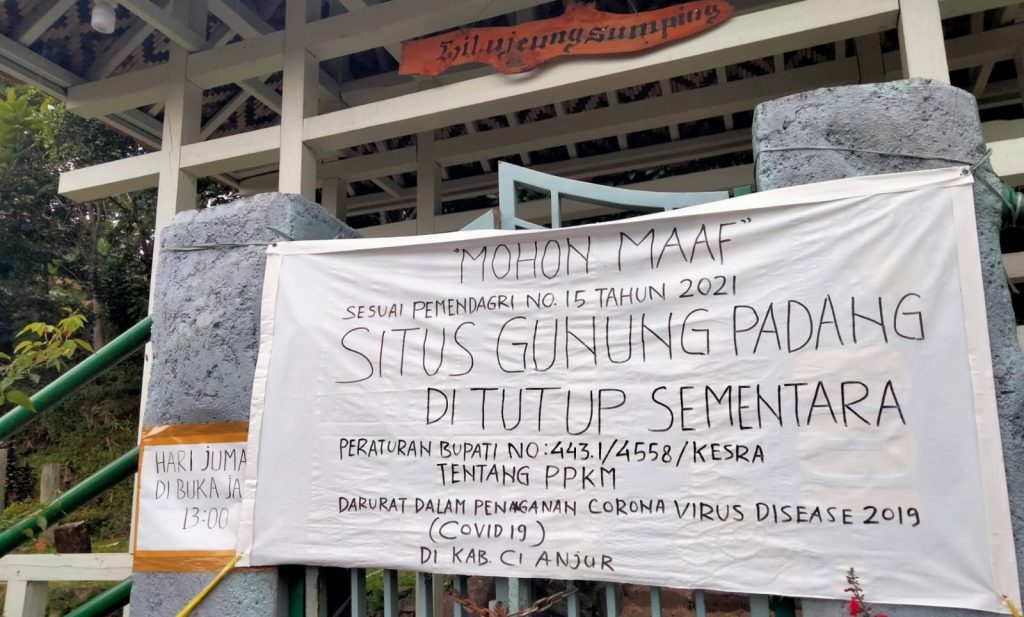 Wilujeungsumping
"MOHON MAAF"
SESUAI PEMENDAGRI NO. 15 TAHUN 2021
SITUS GUNUNG PADANG
DI TUTUP SEMENTARA
PERATURAN BUPATI NO:443.1/4558/KESRA
TENTANG PPKM
DARURAT DALAM PENAGANAN CORONA VIRUS DISEASE 2019
(COVID 19)
DI KAB. CI ANJUR
HARI JUMA
DI BUKA JA
13:00